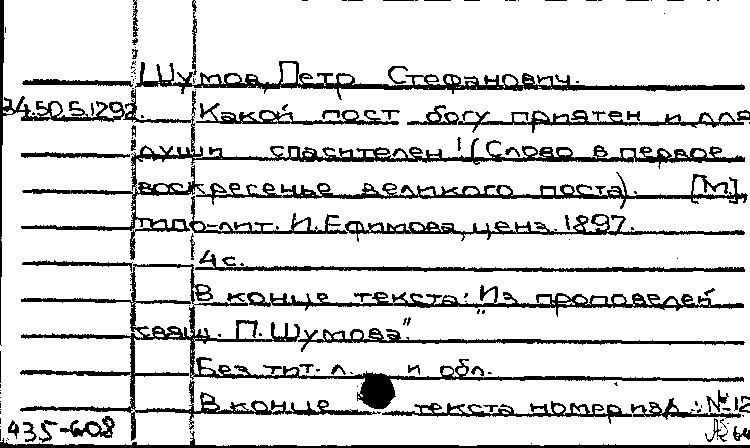 Шумов, Петр Стефанович.
34.50.5.1292. Какой пост богу приятен и для
души спасителен! (Слово в первое
воскресенье великого поста). [М.],
типо-лит. И. Ефимова, ценз. 1897.
4 с.
В конце текста: "Из проповедей
свящ. П. Шумова".
Без тит. л. и обл.
В конце текста номер изд.: № 12
435-608